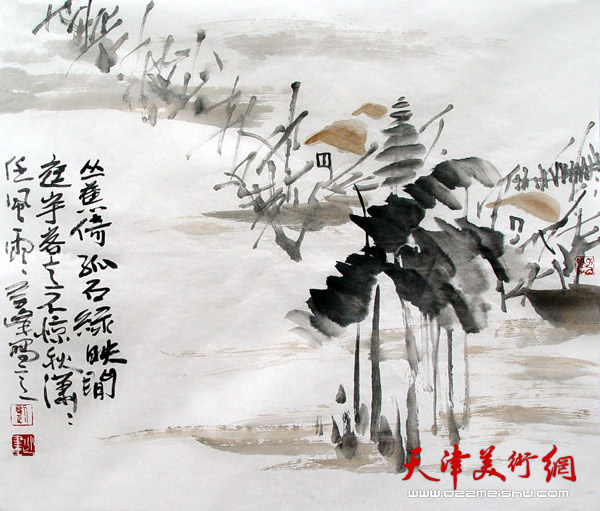 丛蕉倚孤石绿映閒
庭宇客意不惊秋潇々
任風雨
天津美術網
www.022meishu.com